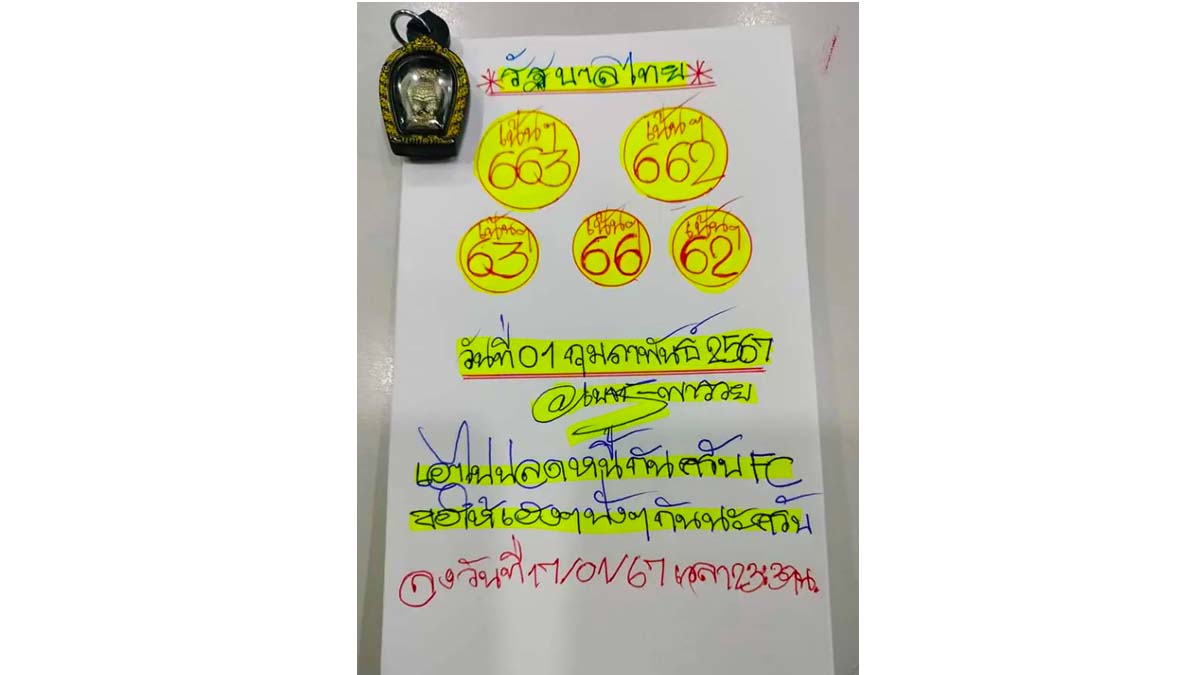 *รัฐบาลไทย*
เน้นๆ เน้นๆ
663 662
เน้นๆ เน้นๆ เน้นๆ
63 66 62
วันที่ 01 กุมภาพันธ์ 2567
@ พารวย
เอาไปปลดหนี้กันครับ FC
ขอให้เฮงๆปังๆกันนะครับ
วันที่ 17/01/67 เวลา